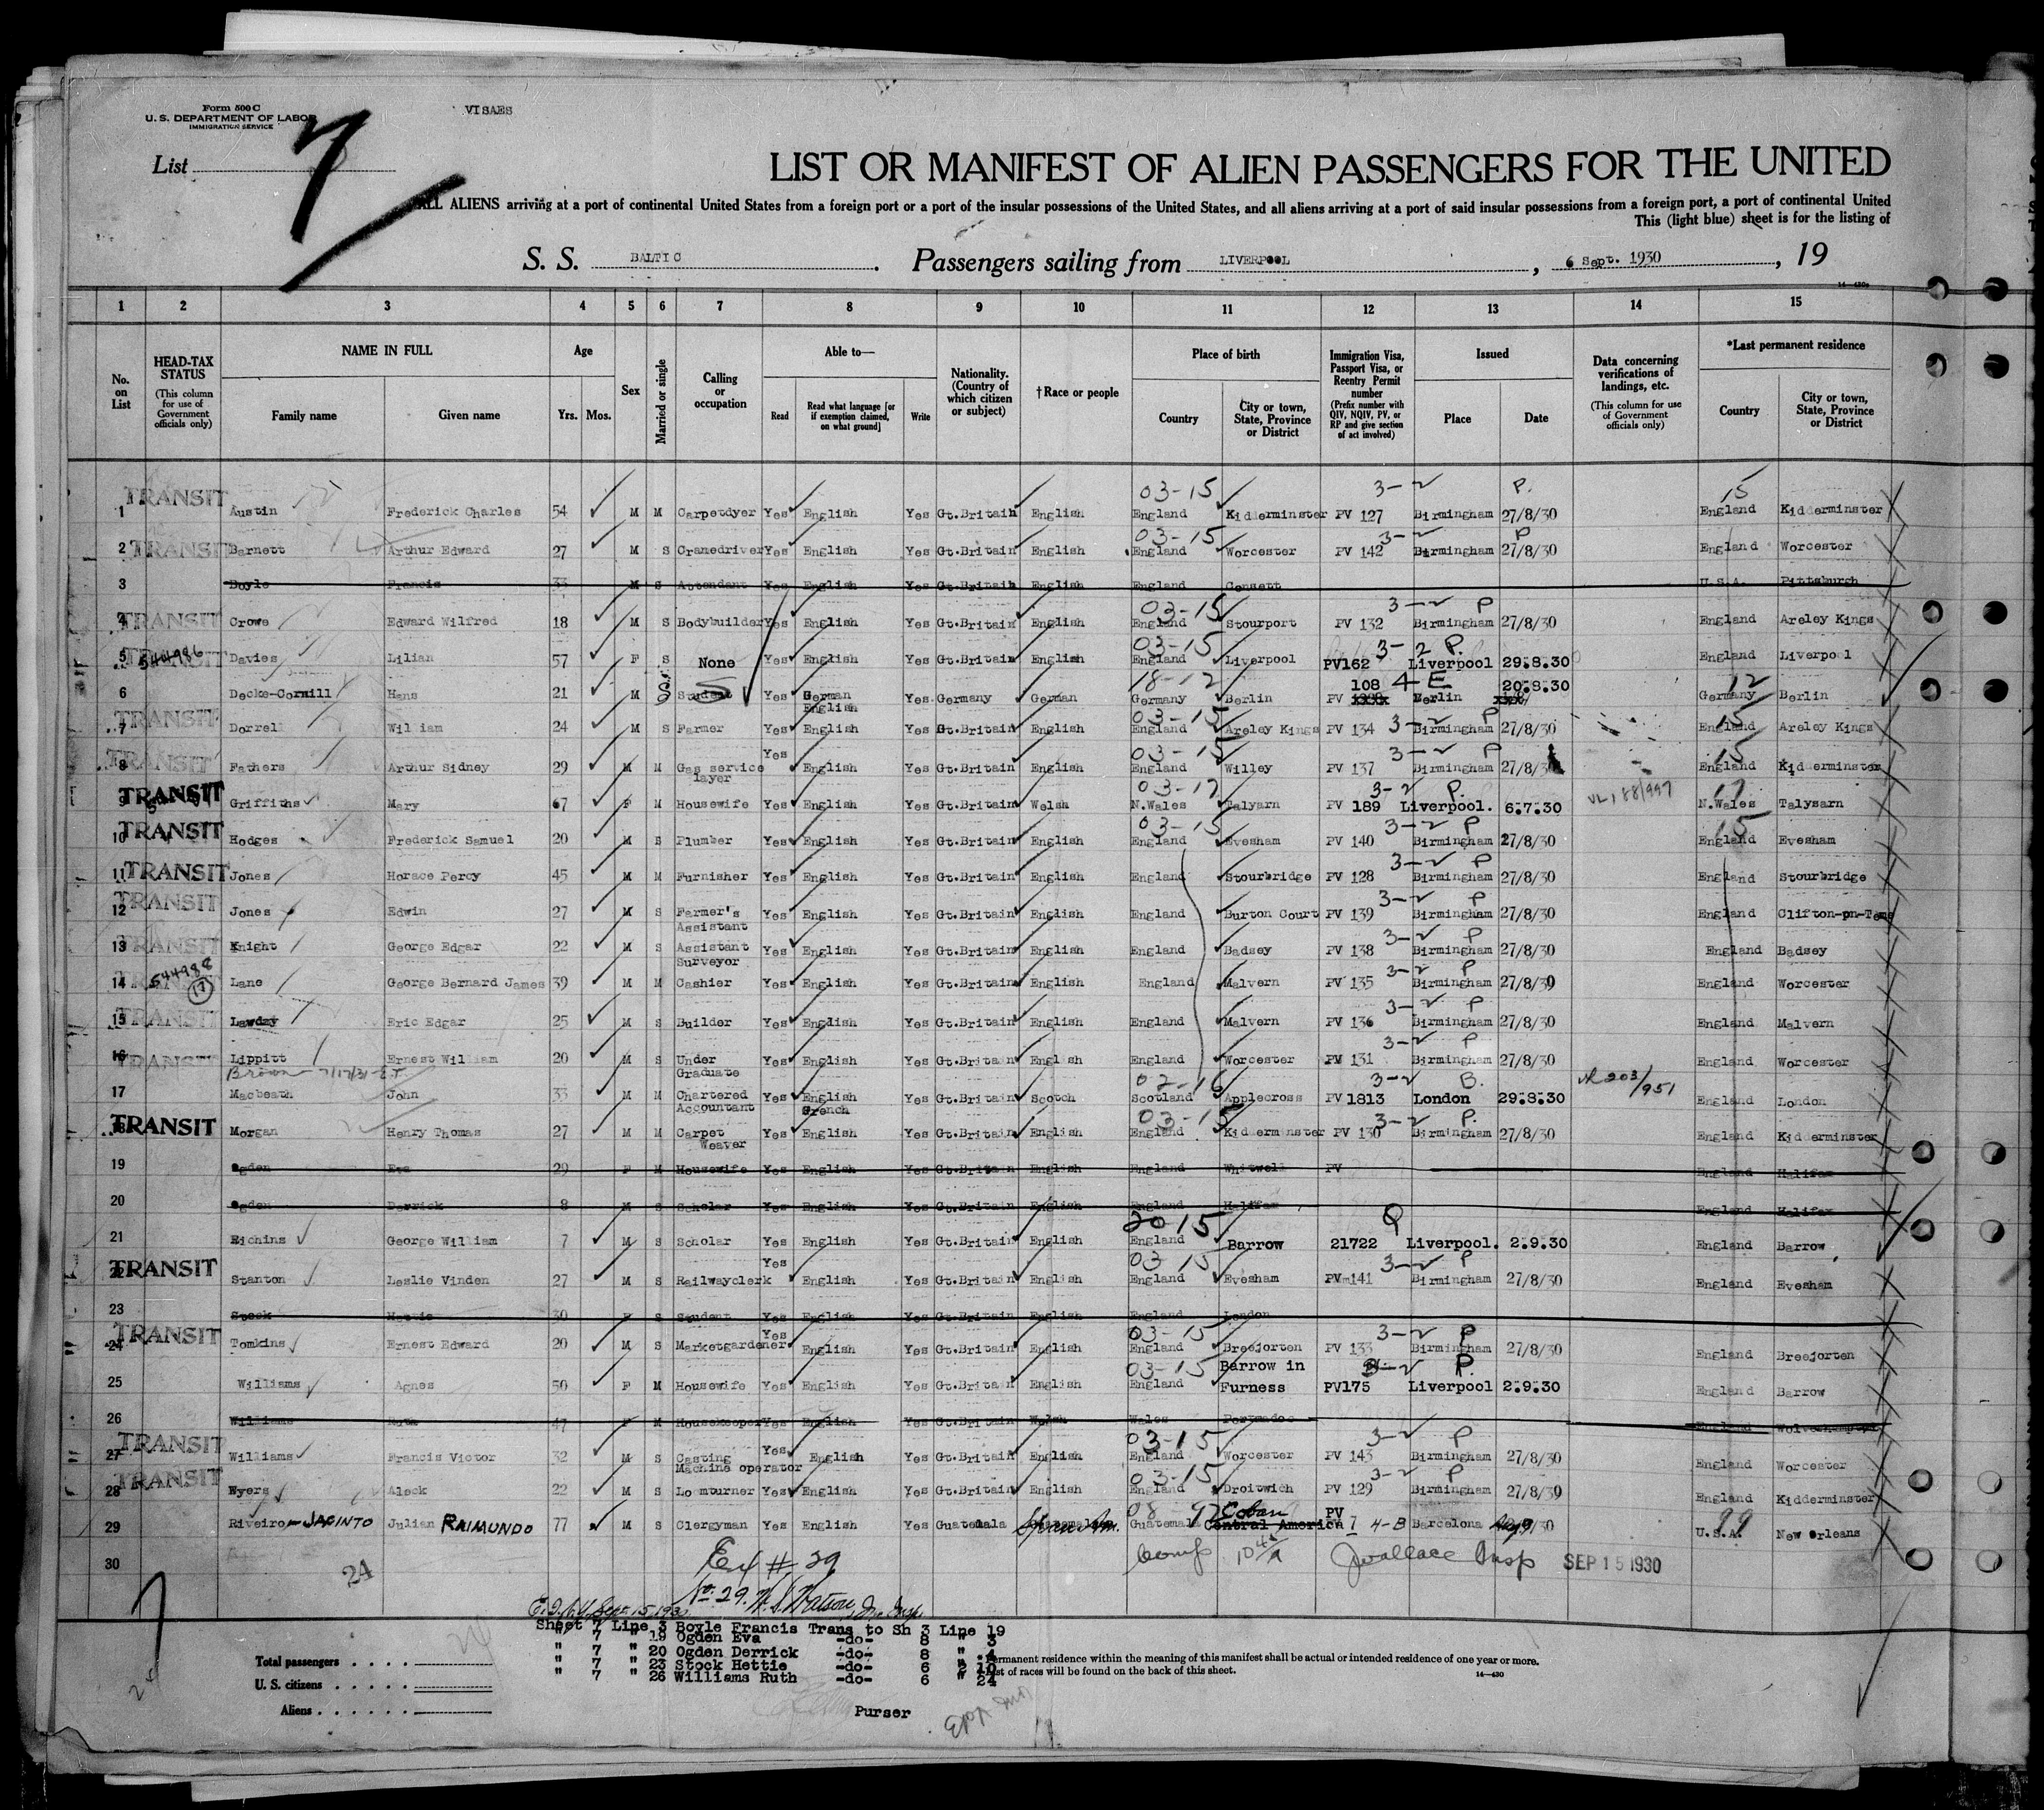 Form 500 C
U. S. DEPARTMENT OF LABOR
IMMIGRATION SERVICE
VISAES
List 7
LIST OR MANIFEST OF ALIEN PASSENGERS FOR THE UNITED
ALL ALIENS arriving at a port of continental United States from a foreign port or a port of the insular possessions of the United States, and all aliens arriving at a port of said insular possessions from a foreign port, a port of continental United
This (light blue) sheet is for the listing of
S. S. BALTIC. Passengers sailing from LIVERPOOL, 6 Sept. 1930, 19
1 2 3 4 5 6 7 8 9 10 11 12 13 14 15
No. on List
HEAD-TAX STATUS (This column for use of Government officials only)
NAME IN FULL Family name Given name
Age Yrs. Mos.
Sex
Married or single
Calling or occupation
Able to— Read Read what language [or if exemption claimed, on what ground] Write
Nationality. (Country of which citizen or subject)
†Race or people
Place of birth Country City or town, State, Province or District
Immigration Visa, Passport Visa, or Reentry Permit number (Prefix number with QIV, NQIV, PV, or RP and give section of act involved)
Issued Place Date
Data concerning verifications of landings, etc. (This column for use of Government officials only)
*Last permanent residence Country City or town, State, Province or District
TRANSIT 03-15 3-2 P. 15
1 Austin Frederick Charles 54 M M Carpetdyer Yes English Yes Gt.Britain English England Kidderminster PV 127 Birmingham 27/8/30 England Kidderminster
03-15 3-2 P
2 TRANSIT Barnett Arthur Edward 27 M S Cranedriver Yes English Yes Gt.Britain English England Worcester PV 142 Birmingham 27/8/30 England Worcester
3 Boyle Francis 33 M S Attendant Yes English Yes Gt.Britain English England Consett U.S.A. Pittsburgh
03-15 3-2 P
4 TRANSIT Crowe Edward Wilfred 18 M S Bodybuilder Yes English Yes Gt.Britain English England Stourport PV 132 Birmingham 27/8/30 England Areley Kings
03-15 3-2 P.
5 TRANSIT 544986 Davies Lilian 57 F S None Yes English Yes Gt.Britain English England Liverpool PV162 Liverpool 29.8.30 England Liverpool
18-12 108 4 E 20.8.30 12
6 Decke-Cornill Hans 21 M S Student Yes German English Yes Germany German Germany Berlin PV Berlin Germany Berlin
03-15 3-2 P 15
7 TRANSIT Dorrell William 24 M S Farmer English Yes Gt.Britain English England Areley Kings PV 134 Birmingham 27/8/30 England Areley Kings
03-15 3-2 P 15
8 TRANSIT Fathers Arthur Sidney 29 M M Gas service layer Yes English Yes Gt.Britain English England Willey PV 137 Birmingham 27/8/30 England Kidderminster
03-17 3-2 P. 17
9 TRANSIT Griffiths Mary 67 F M Housewife Yes English Yes Gt.Britain Welsh N.Wales Talyarn PV 189 Liverpool. 6.7.30 N.Wales Talysarn
03-15 3-2 P 15
10 TRANSIT Hodges Frederick Samuel 20 M S Plumber Yes English Yes Gt.Britain English England Evesham PV 140 Birmingham 27/8/30 England Evesham
3-2 P
11 TRANSIT Jones Horace Percy 45 M M Furnisher Yes English Yes Gt.Britain English England Stourbridge PV 128 Birmingham 27/8/30 England Stourbridge
3-2 P
12 TRANSIT Jones Edwin 27 M S Farmer's Assistant Yes English Yes Gt.Britain English England Burton Court PV 139 Birmingham 27/8/30 England Clifton-on-Teme
3-2 P
13 TRANSIT Knight George Edgar 22 M S Assistant Surveyor Yes English Yes Gt.Britain English England Badsey PV 138 Birmingham 27/8/30 England Badsey
3-2 P
14 TRANSIT 544988 Lane George Bernard James 39 M M Cashier Yes English Yes Gt.Britain English England Malvern PV 135 Birmingham 27/8/30 England Worcester
3-2 P
15 TRANSIT Eric Edgar 25 M S Builder Yes English Yes Gt.Britain English England Malvern PV 136 Birmingham 27/8/30 England Malvern
3-2 P
16 TRANSIT Lippitt Ernest William 20 M S Under Graduate Yes English Yes Gt.Britain English England Worcester PV 131 Birmingham 27/8/30 England Worcester
Brown 7/17/31 E.T. 02-16 3-2 B.
17 Macbeath John 33 M M Chartered Accountant Yes English French Yes Gt.Britain Scotch Scotland Applecross PV 1813 London 29.8.30 England London
03-15 3-2 P.
18 TRANSIT Morgan Henry Thomas 27 M M Carpet Weaver Yes English Yes Gt.Britain English England Kidderminster PV 130 Birmingham 27/8/30 England Kidderminster
19 Ogden Eva 29 F M Housewife Yes English Yes Gt.Britain English England Whitwell PV England Halifax
20 Ogden Derrick 8 M S Scholar Yes English Yes Gt.Britain English England Halifax England Halifax
2015 Q
21 George William 7 M S Scholar Yes English Yes Gt.Britain English England Barrow 21722 Liverpool. 2.9.30 England Barrow
03 15 3-2 P
22 TRANSIT Stanton Leslie Vinden 27 M S Railwayclerk Yes English Yes Gt.Britain English England Evesham PV 141 Birmingham 27/8/30 England Evesham
23 Stock Hettie 30 F S Student Yes English Yes Gt.Britain English England London
03-15 3-2 P
24 TRANSIT Tomkins Ernest Edward 20 M S Marketgardener Yes English Yes Gt.Britain English England Breejorten PV 133 Birmingham 27/8/30 England Breejorten
03-15 3-2 P.
25 Williams Agnes 50 F M Housewife Yes English Yes Gt.Britain English England Barrow in Furness PV175 Liverpool 2.9.30 England Barrow
26 Williams Ruth 47 F M Housekeeper Yes English Yes Gt.Britain Welsh Wales Portmadoc England Wolverhampton
03-15 3-2 P
27 TRANSIT Williams Francis Victor 32 M S Casting Machine operator Yes English Yes Gt.Britain English England Worcester PV 143 Birmingham 27/8/30 England Worcester
03-15 3-2 P
28 TRANSIT Wyers Aleck 22 M S Loomturner Yes English Yes Gt.Britain English England Droitwich PV 129 Birmingham 27/8/30 England Kidderminster
08-97 Coban 99
29 Riveiro-JACINTO Julian RAIMUNDO 77 M S Clergyman Yes English Yes Guatemala Span Am. Guatemala Central America PV 7 4-B Barcelona U.S.A. New Orleans
30 24 Ex # 29 Comp Jwallace Insp SEP 15 1930
No. 29. Watson
Sept 15, 193
Sheet 7 Line 3 Boyle Francis Trans to Sh 3 Line 19
" 7 " 19 Ogden Eva -do- 8 " 3
" 7 " 20 Ogden Derrick -do- 8 " 4
" 7 " 23 Stock Hettie -do- 6 10
" 7 " 26 Williams Ruth -do- 6 " 24
Permanent residence within the meaning of this manifest shall be actual or intended residence of one year or more.
List of races will be found on the back of this sheet.
14—430
Total passengers
U. S. citizens
Aliens
Purser